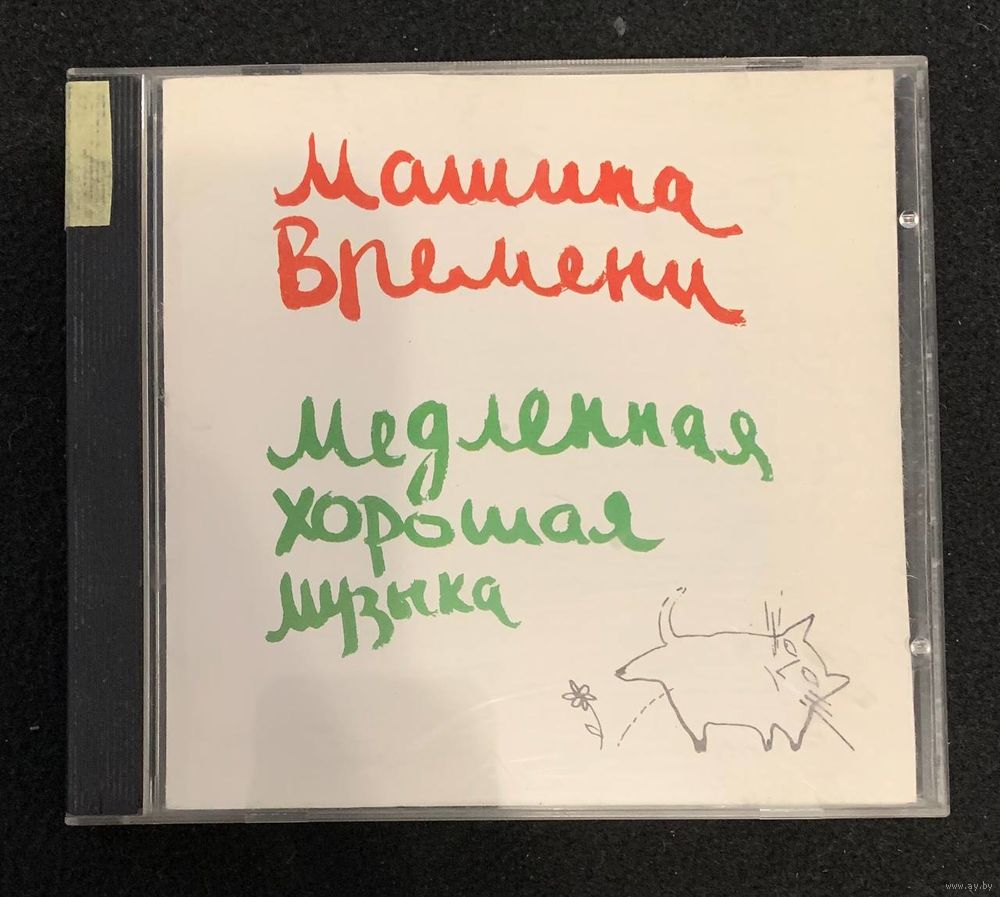 Машина
Времени
Медленная
хорошая
музыка
www.ay.by